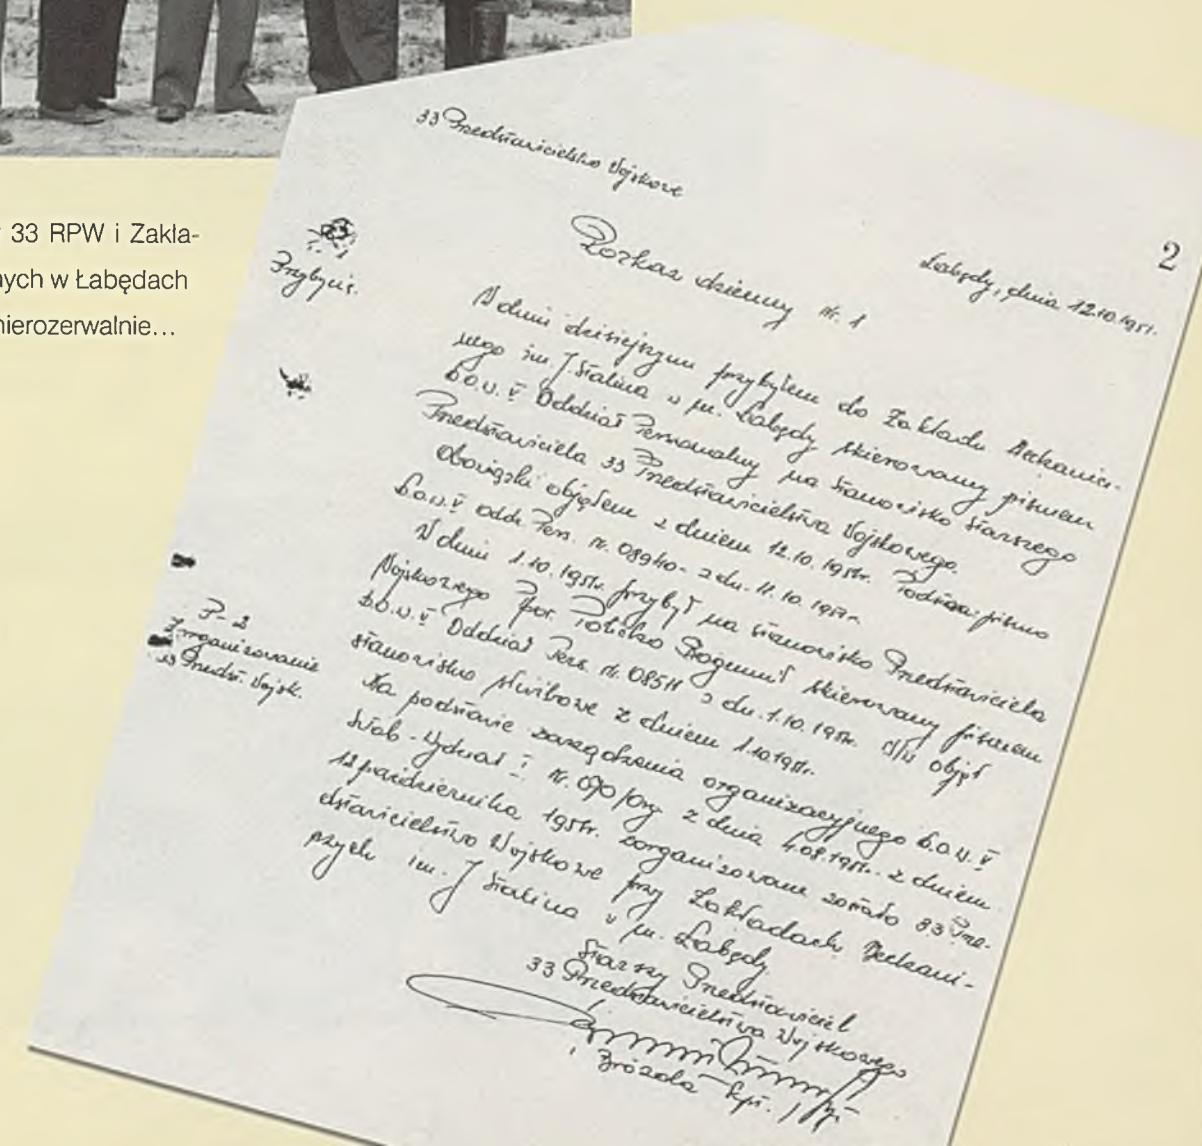 33 RPW i Zakła-
nych w Łabędach
nierozerwalnie...
2
33 Przedstawicielstwo Wojskowe
Łabędy, dnia 12.10.1951.
Rozkaz dzienny nr. 1
Przybycie.
W dniu dzisiejszym przybyłem do Zakładu Mechanicz-
nego im J Stalina w m. Łabędy skierowany pismem
D.O.W. V Oddział Personalny na stanowisko starszego
Przedstawiciela 33 Przedstawicielstwa Wojskowego.
Obowiązki objąłem z dniem 12.10.1951r. Podstawa: pismo
D.O.W. V oddz. Pers. nr. 08940 z dn. 11.10.1951r.
W dniu 1.10.1951r. przybył na stanowisko Przedstawiciela
Wojskowego Por. Bogumił skierowany pismem
D.O.W. V Oddział Pers. nr. 08511 z dn. 1.10.1951r. W/w objął
stanowisko służbowe z dniem 1.10.1951r.
P-2
Zorganizowanie
33 Przedst. Wojsk.
Na podstawie zarządzenia organizacyjnego D.O.W. V
Sztab - Wydział I nr. 090/org z dnia 4.08.1951r. z dniem
12 października 1951r. zorganizowane zostało 33 Prze-
dstawicielstwo Wojskowe przy Zakładach Mechani-
cznych im. J Stalina w m. Łabędy
Starszy Przedstawiciel
33 Przedstawicielstwa Wojskowego
Brzózda kpt.